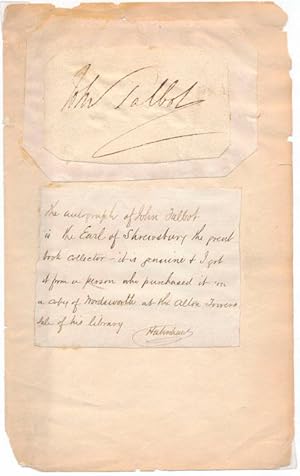 John Talbot
The autograph of John Talbot
is the Earl of Shrewsbury the great
book collector - it is genuine & I got
it from a person who purchased it in
a copy of Wordsworth at the Alton Towers
sale of his library